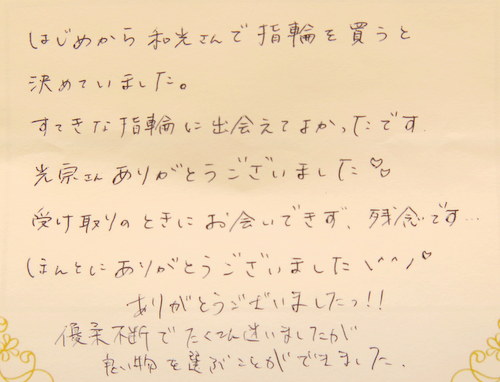 はじめから和光さんで指輪を買うと
決めていました。
すてきな指輪に出会えてよかったです
光宗さんありがとうございました♡♡
受け取りのときにお会いできず、残念です…
ほんとにありがとうございました\(^^)/♡
ありがとうございましたっ!!
優柔不断でたくさん迷いましたが
良い物を選ぶことができました.